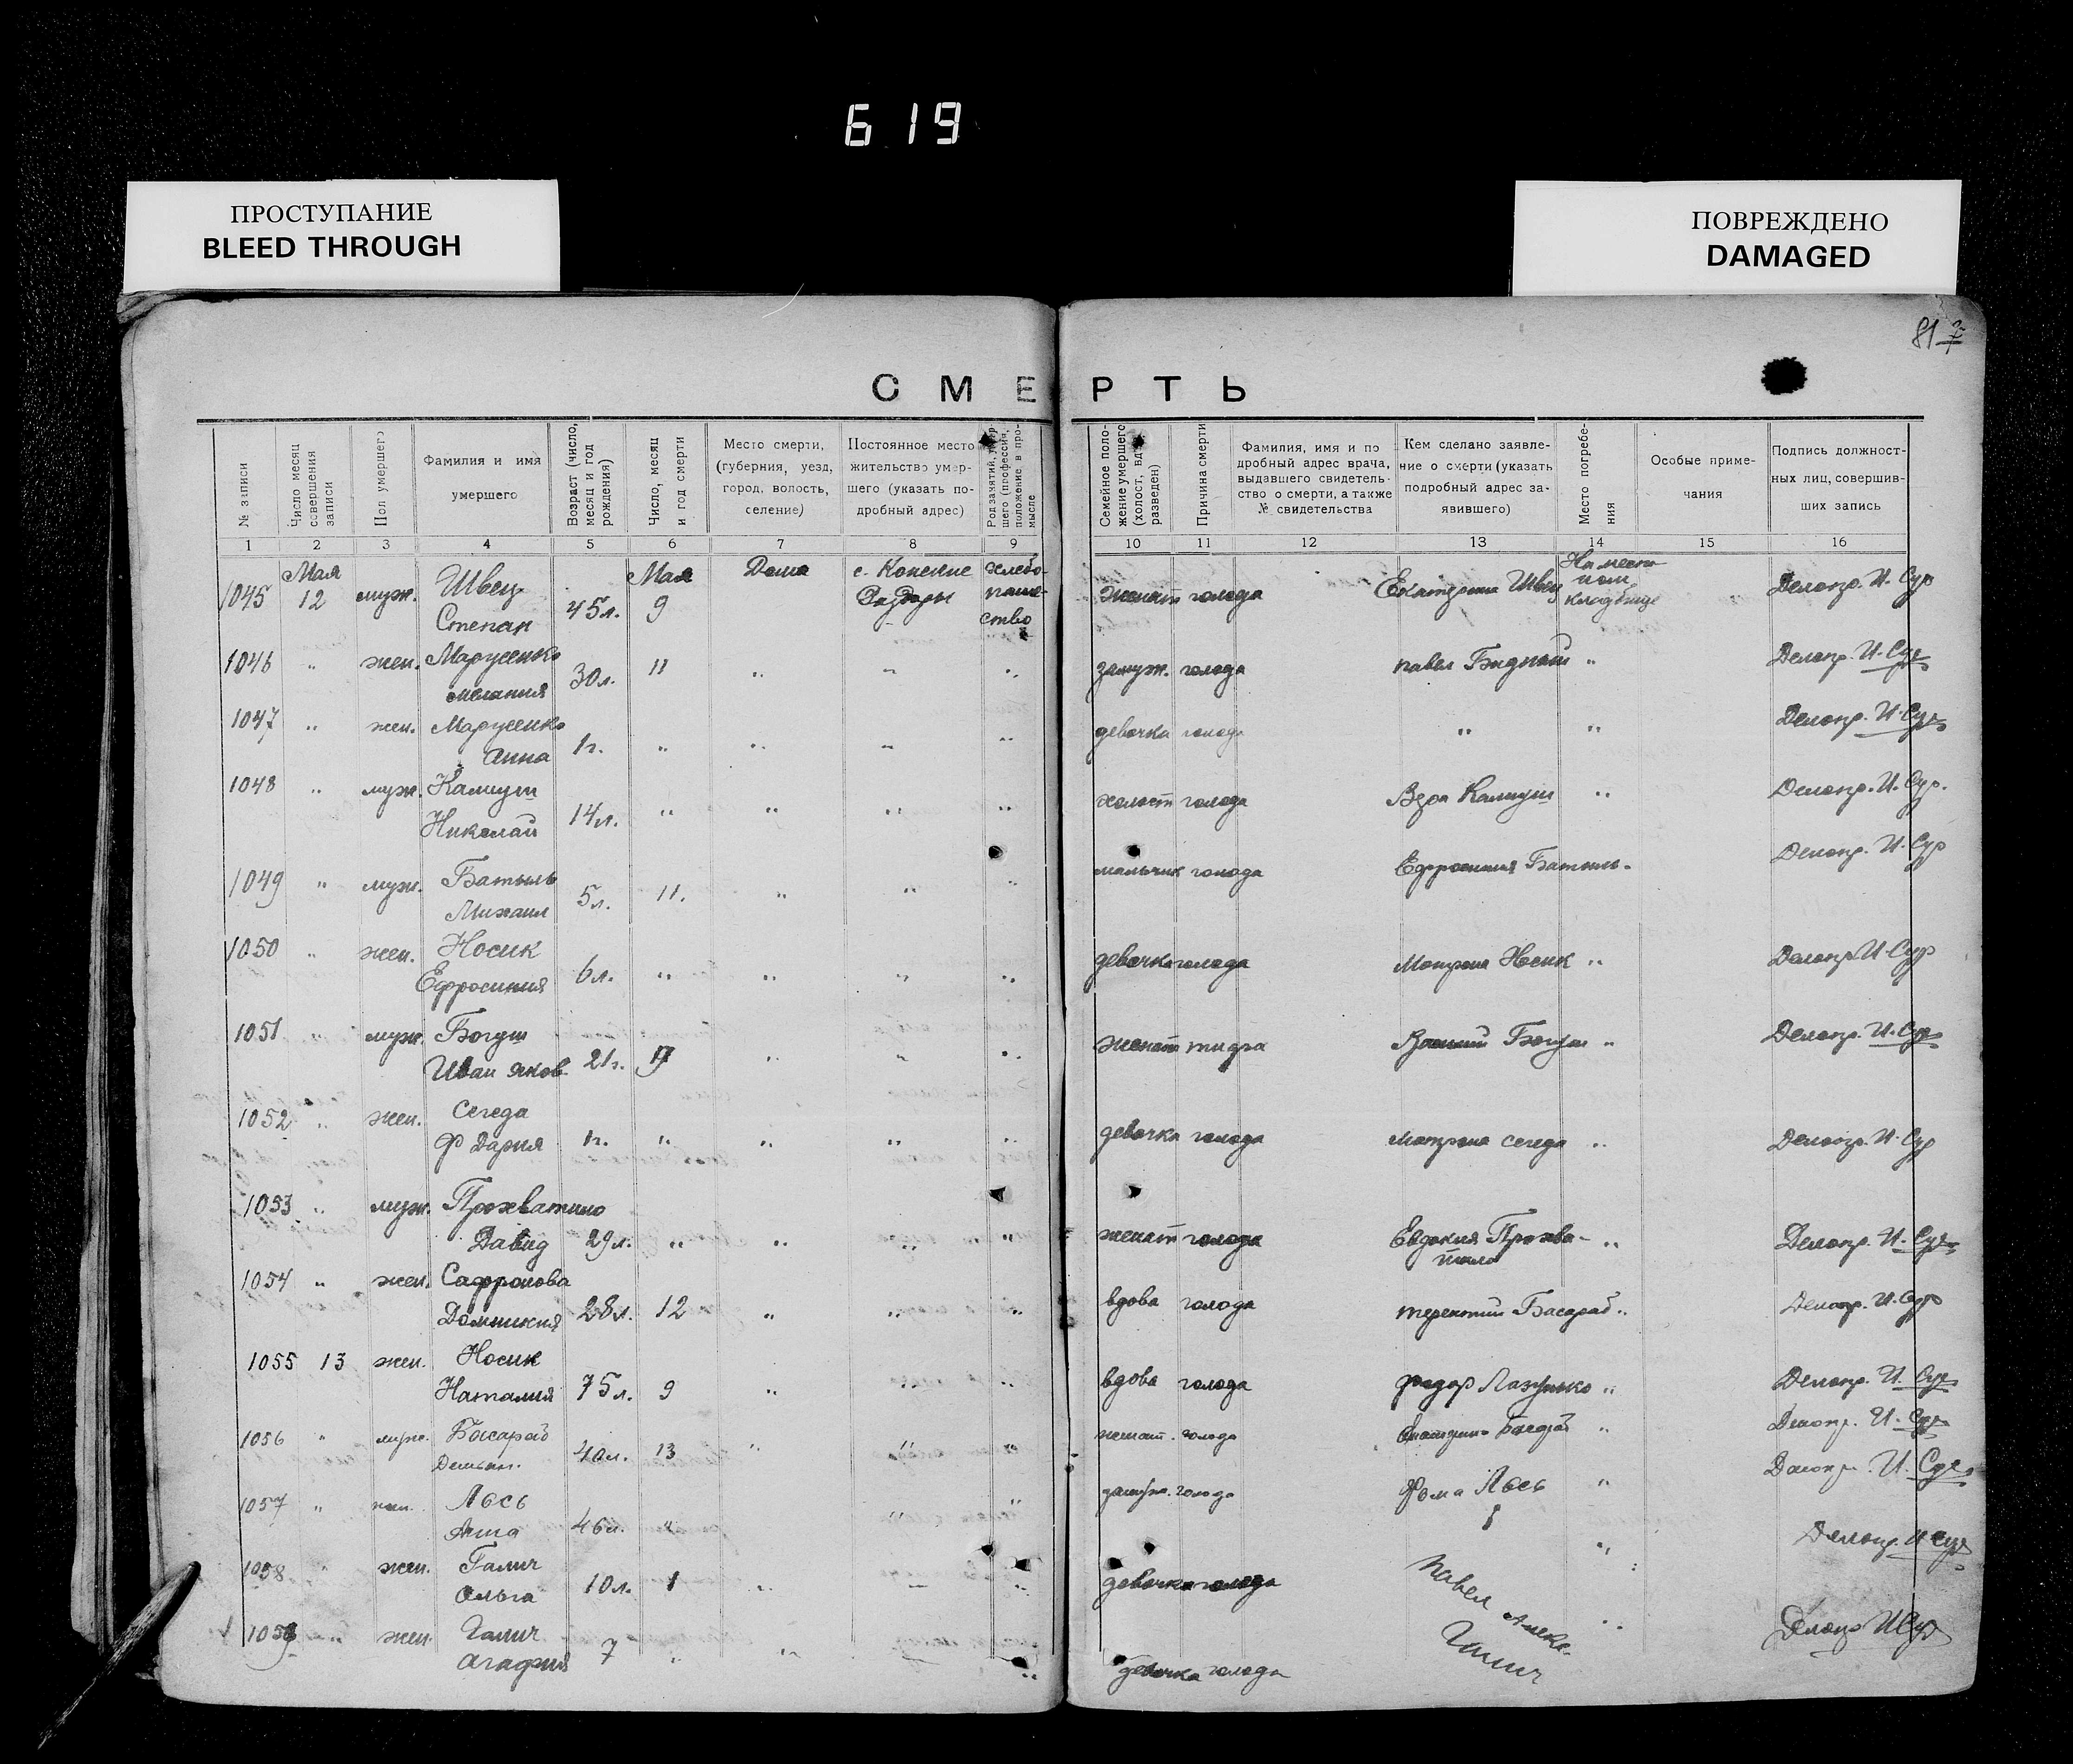 619
ПРОСТУПАНИЕ
BLEED THROUGH
ПОВРЕЖДЕНО
DAMAGED
81
СМЕРТЬ
№ записи
Число месяц совершения записи
Пол умершего
Фамилия и имя
умершего
Возраст (число, месяц и год рождения)
Число, месяц и год смерти
Место смерти,
(губерния, уезд,
город, волость,
селение)
Постоянное место
жительство умер-
шего (указать по-
дробный адрес)
Род занятий, умер-
шего (профессия,
положение в про-
мысле
Семейное поло-
жение умершего
(холост, вдов,
разведен)
Причина смерти
Фамилия, имя и по
дробный адрес врача,
выдавшего свидетель-
ство о смерти, а также
№ свидетельства
Кем сделано заявле-
ние о смерти (указать
подробный адрес за-
явившего)
Место погребе-
ния
Особые приме-
чания
Подпись должност-
ных лиц, совершив-
ших запись
1 2 3 4 5 6 7 8 9 10 11 12 13 14 15 16
1045 Мая 12 муж. Швец Степан 45л. Мая 9 Дома с. Конские Раздоры хлебо-паше-ство женат голода Екатерина Швец На местн кладбище Делопр. И. Сур
1046 " жен. Марусенко Мелания 30л. 11 " " " замуж. голода Павел Бидный " Делопр. И. Сур
1047 " жен. Марусенко Анна 1г. " " " " девочка голода " " Делопр. И. Сур
1048 " муж. Калиуш Николай 14л. " " " " холост голода Вера Калиуш " Делопр. И. Сур.
1049 " муж. Батыль Михаил 5л. 11. " " " мальчик голода Ефросиния Батыль Делопр. И. Сур
1050 " жен. Носик Ефросиния 6л. " " " " девочка голода Мотрона Носик " Делопр И Сур
1051 " муж. Богуш Иван Яков 21г. " " " женат тифа Богуш " Делопр. И. Сур
1052 " жен. Сегеда Дария 1г. " " " " девочка голода Мотрона Сегеда " Делопр. И. Сур
1053 " муж. Прохватило Давид 29л. " " " " женат голода Евдокия Прохва-тило " Делопр. И. Сур
1054 " жен. Сафронова Домникия 28л. 12 " " " вдова голода Терентий Басараб " Делопр. И. Сур
1055 13 жен. Носик Наталия 75л. 9 " " " вдова голода Федор Лазунько " Делопр. И. Сур
1056 " муж. Басараб Демьян. 40л. 13 " " " женат. голода Екатерина Басараб " Делопр. И. Сур
1057 " жен. Лось Анна 46л. " " " замуж. голода Фома Лось " Делопр. И. Сур
1058 " жен. Галич Ольга 10л. 1 " " " девочка голода Павел Галич " Делопр. И Сур
1059 " жен. Галич Агафия 7 " " " " девочка голода " Делопр И Сур